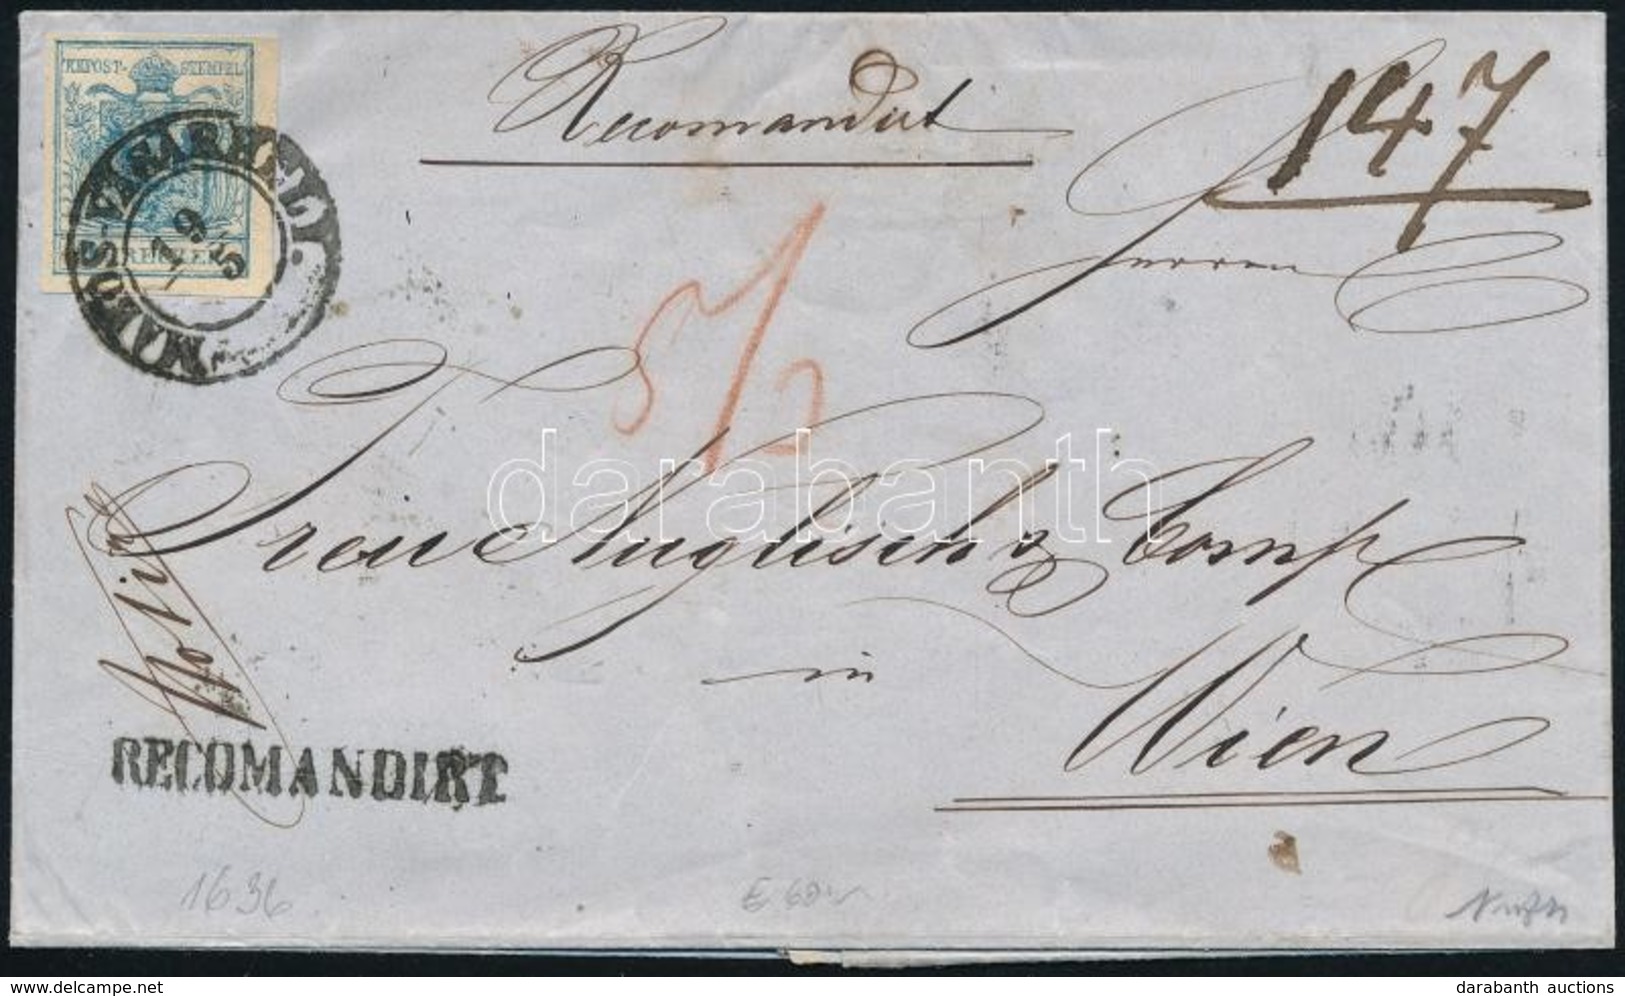 KKPOST-STEMPEL
KREUZER
MAROS-VASARHELY.
19/5
Recomandirt
147
Herren
5/2
Treu Nuglisch & Comp
in
Wien
RECOMANDIRT
1636
darabanth
www.delcampe.net
darabanth auctions